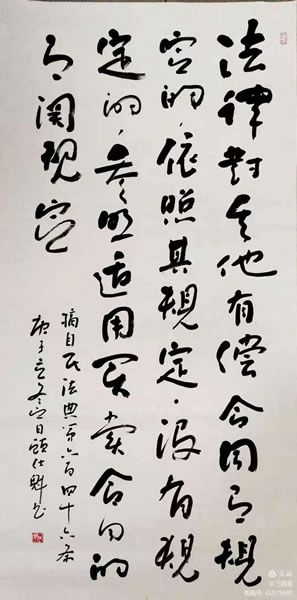 法律对其他有偿合同有规
定的，依照其规定，没有规
定的，参照适用买卖合同的
有关规定
摘自民法典第六百四十六条
庚子立冬前日顾仕魁书
@三冠堂